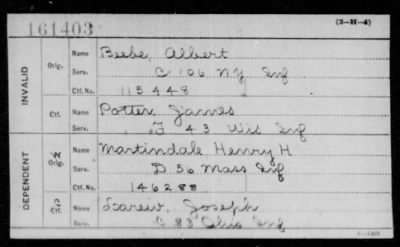 (3-H-4)
161403
INVALID
Orig.
Name Beebe, Albert
Serv. C 106 N.Y. Inf
Ctf. No. 115448
Ctf.
Name Potter, James
Serv. F 43 Wis Inf
DEPENDENT
W Orig.
Name Martindale Henry H
Serv. D 56 Mass Inf
Ctf. No. 146288
Ctf.
Name Joseph
Serv. 83 Ohio Inf